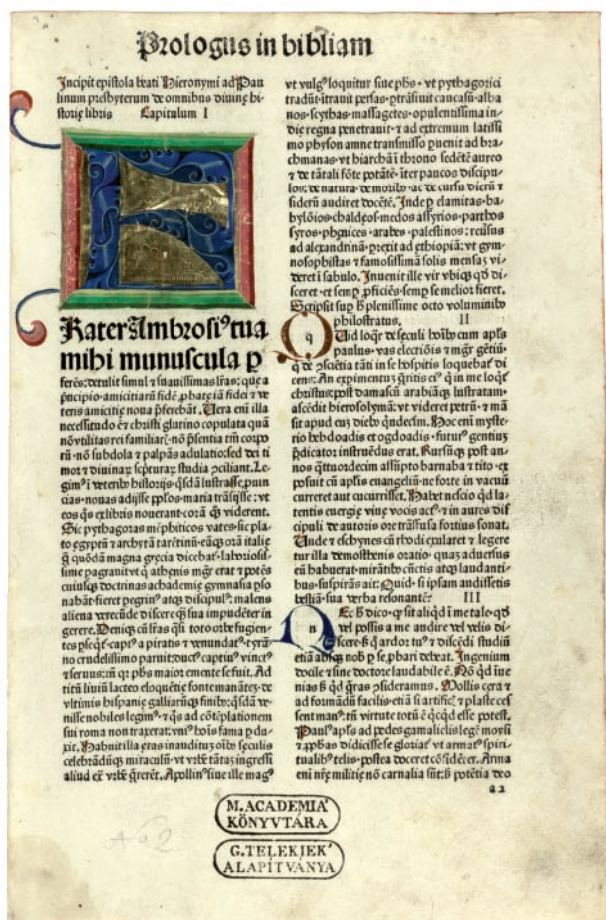 Prologus in bibliam
Incipit epistola beati Hieronymi ad Pau
linum presbyterum de omnibus diuinę hi-
storię libris Capitulum I
F
Rater Ambrosiꝰ tua
mihi munuscula ꝑ
ferēs: detulit simul ⁊ suauissimas lr̄as: que a
prīcipio amicitiarū fidē ꝓbate iā fidei ⁊ ve
teris amicitię noua ꝓferebāt. Uera enī illa
necessitudo ē ⁊ christi glutino copulata quā
nō vtilitas rei familiar: nō pn̄tia tm̄ corpo
rū: nō subdola ⁊ palpās adulatio: sed dei ti
mor ⁊ diuinarū scpturarū studia ꝯciliant. Le-
gimꝰ ī veteribꝰ historijs: qd̄sdā lustrasse ꝓuin
cias: nouas adijsse ppl'os: maria trāsisse: vt
eos q̄s ex libris nouerant: corā q̄ꝫ viderent.
Sic pythagoras mēphiticos vates: sic pla-
to egyptū ⁊ archytā tarētinū: eāqꝫ orā italie
q̄ quōdā magna grecia dicebat: laboriosis-
sime pagrauit: vt q̄ athenis mgr̄ erat ⁊ potēs
cuiusqꝫ doctrinas achademię gymnasia pso
nabāt: fieret pegrinꝰ atqꝫ discipulꝰ: malens
aliena verecūde discere q̄ꝫ sua impudēter in
gerere. Deniqꝫ cū lr̄as q̄si toto orbe fugien-
tes pseqr̄: captꝰ a piratis ⁊ venundatꝰ: tyrā-
no crudelissimo paruit: ductꝰ captiuꝰ vinctꝰ
⁊ seruus: tn̄ qꝛ phs maior emente se fuit. Ad
titū liuiū lacteo eloquētie fonte manātē: de
vltimis hispanię galliarūqꝫ finibꝰ: qd̄sdā ve-
nisse nobiles legimꝰ: ⁊ q̄s ad cōtēplationem
sui roma non traxerat: vniꝰ hoīs fama pdu-
xit. Habuit illa ętas inauditū oībꝰ seculis
celebrādūqꝫ miraculū: vt vrbē tātā ingressi
aliud ex̄ vrbē q̄rerēt. Apollinꝰ siue ille magꝰ
vt vulgꝰ loquitur siue phs · vt pythagorici
tradūt: ītrauit persas · ptrāsiuit caucasū · alba
nos · scythas · massagetes · opulentissima in-
die regna penetrauit · ⁊ ad extremum latissi
mo physon amne transmisso puenit ad bra-
chmanas · vt hiarchā ī throno sedētē aureo
⁊ de tātali fōte potātē · iter paucos discipu-
los: de natura · de moribꝰ · ac de cursu dierū ⁊
siderū audiret docētē. Inde p elamitas · ba-
bylōios · chaldęos · medos · assyrios · parthos
syros · phęnices · arabes · palestinos: reuersus
ad alexandrinā: prexit ad ethiopiā: vt gym-
nosophistas ⁊ famosissimā solis mensaꝫ vi-
deret ī sabulo. Inuenit ille vir vbiqꝫ qd̄ di-
sceret · et semp ꝓficiēs · semp se melior fieret.
Scripsit sup h̄ plenissime octo voluminibꝰ
philostratus. II
q
Uid loqr̄ de sęculi hoībꝰ cum apl's
paulus · vas electiōis ⁊ mgr̄ gētiū ·
q̄ de ꝯsciētia tāti in se hospitis loquebat di
cens: An expimentuꝫ q̄ritis eiꝰ q̄ in me loqr̄
christus: post damascū arabiāqꝫ lustratam ·
ascēdit hierosolymā: vt videret petrū · ⁊ mā
sit apud eum diebꝰ qndecim. Hoc enī myste-
rio hebdoadis et ogdoadis · futurꝰ gentiuꝫ
pdicator instruēdus erat. Rursūqꝫ post an-
nos qttuordecim assūpto barnaba ⁊ tito · ex
posuit cū apl'is euangeliū · ne forte in vacuū
curreret aut cucurrisset. Habet nescio qd la-
tentis energię viuę vocis actꝰ · ⁊ in aures di-
scipuli de autoris ore trāsfusa fortius sonat.
Unde ⁊ eschynes cū rhodi exularet ⁊ legere
tur illa demosthenis oratio · quaꝫ aduersus
eū habuerat · mirātibꝰ cūctis atqꝫ laudanti-
bus · suspirās ait: Quid · si ipsam audissetis
bestiā · sua verba resonantē? III
n
Ec h̄ dico · qꝛ sit aliqd ī me tale · qd
vel possis a me audire vel velis di-
scere · s̄ q̄ ardor tuꝰ ⁊ discēdi studiū
etiā absqꝫ nob p se ꝓbari debeat. Ingenium
docile ⁊ sine doctore laudabile ē. Nō qd īue
nias s̄ qd q̄ras ꝯsideramus. Mollis cera ⁊
ad formādū facilis · etiā si artificꝭ ⁊ plaste ces
sent manꝰ: tn̄ virtute totū ē qcqd esse potest.
Paulꝰ apl's ad pedes gamalielis legē moysi
⁊ ꝓphas didicisse se gloriat: vt armatꝰ spiri-
tualibꝰ telis · postea doceret cōfidēter. Arma
enī nr̄e militię nō carnalia sūt: s̄ potētia deo
a 2
M. ACADEMIA'
KÖNYVTÁRA
G. TELEKIEK'
ALAPÍTVÁNYA
No 2